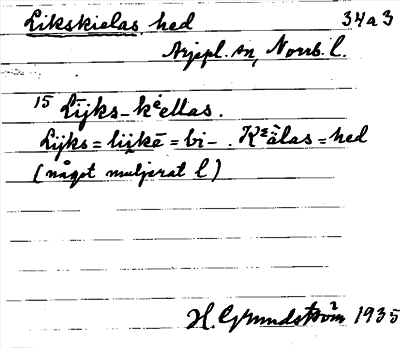 Likskielas, hed 34a3
Arjepl. sn, Norrb. l.
15 Lijks-kᵉellas.
Lijks = lijkē = bi-. Kᵉälas = hed
(något muljerat l)
H. Grundström 1935